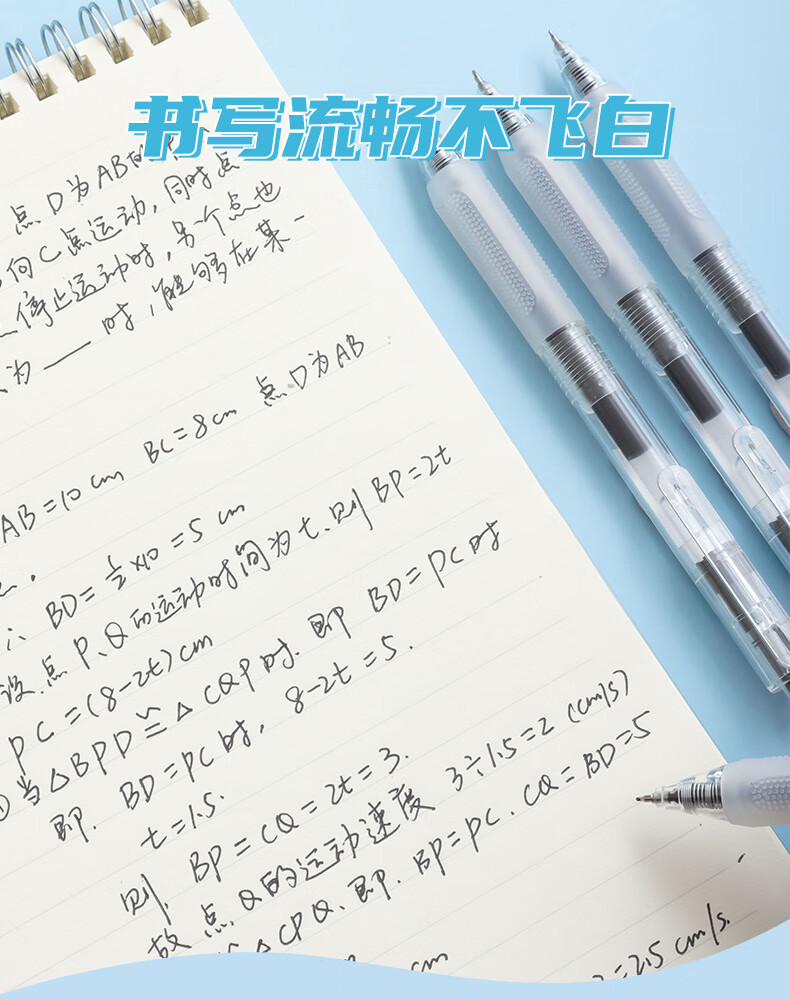 书写流畅不飞白
点D为AB的
向C点运动,同时点
停止运动时,另个点也
为——时,能够在某一
AB=10cm BC=8cm 点D为AB
∴ BD=½×10=5cm
设点P、Q的运动时间为t.则BP=2t
PC=(8-2t)cm
①当△BPD≌△CQP时.即BD=PC时
即.BD=PC时,8-2t=5.
t=1.5.
则.BP=CQ=2t=3.
故点Q的运动速度3÷1.5=2(cm/s)
≌△CPQ.即.BP=PC.CQ=BD=5
cm
=2.5cm/s.